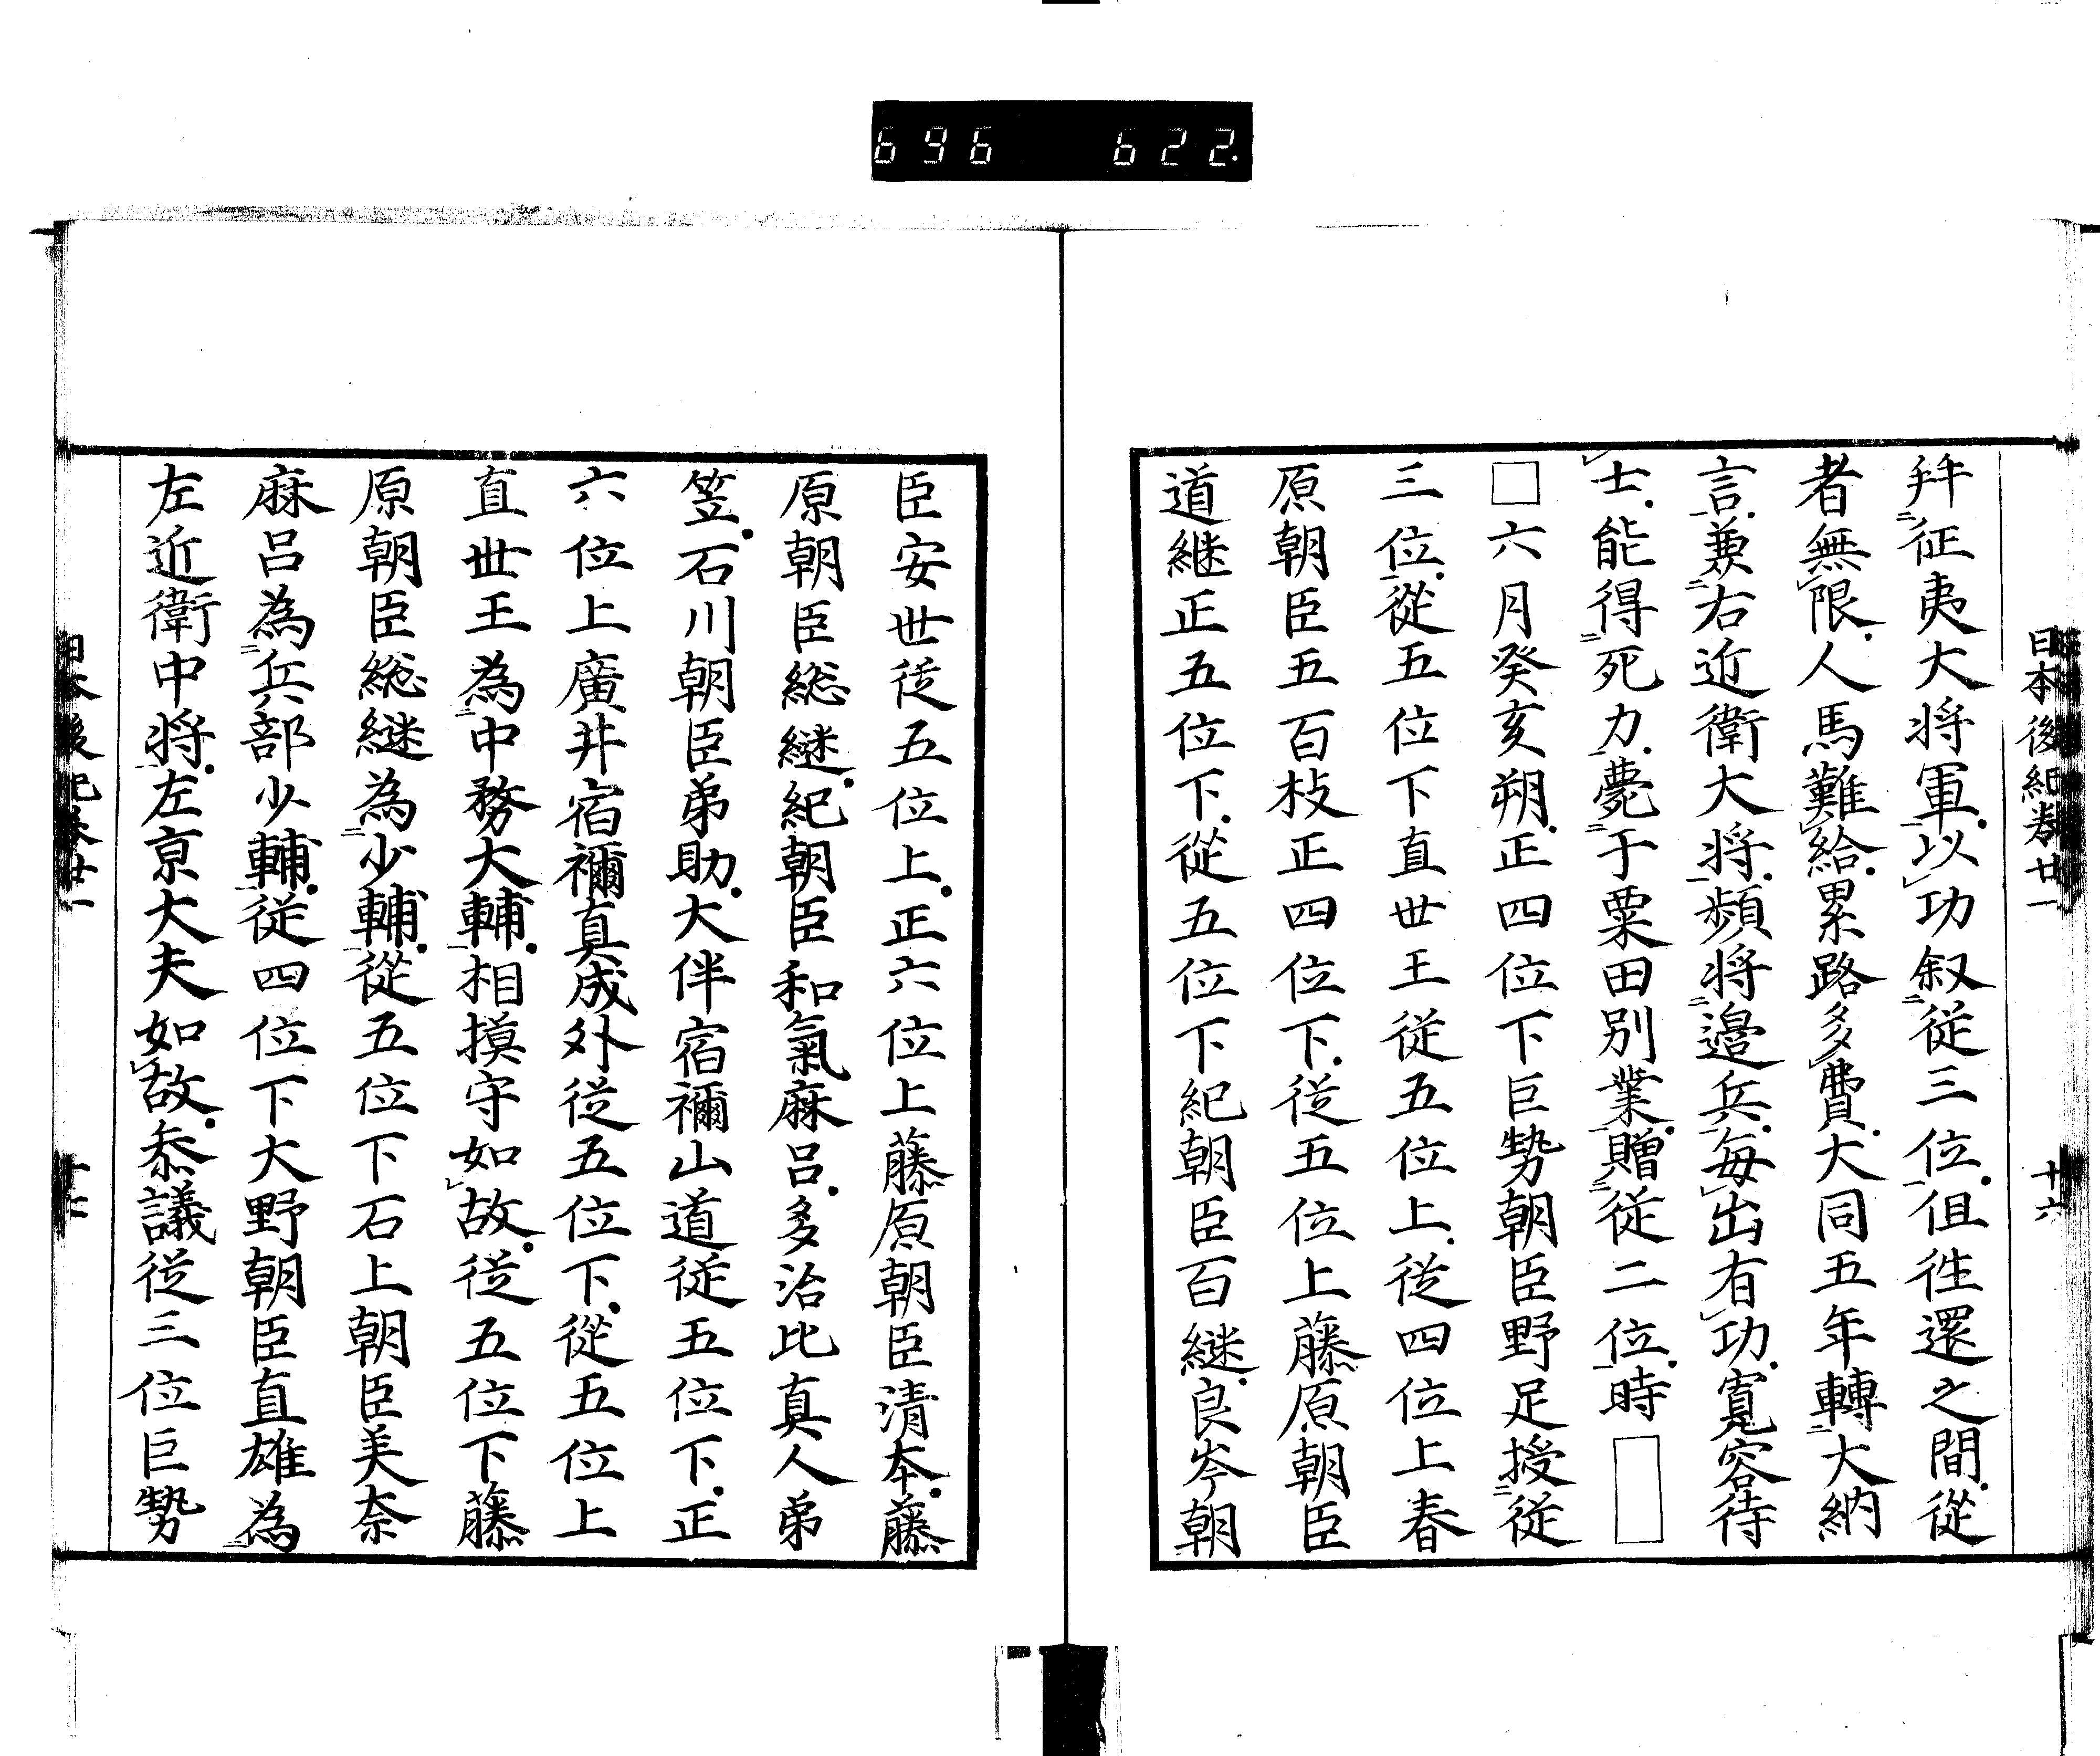 696 622.
日本後紀卷廿一 十六
拜征夷大将軍以功叙従三位但徃還之間從
者無限人馬難給累路多費大同五年轉大納
言兼右近衛大将頻将邉兵毎出有功寛容待
士能得死力薨于粟田別業贈従二位時□
□六月癸亥朔正四位下巨勢朝臣野足授従
三位從五位下直世王従五位上従四位上春
原朝臣五百枝正四位下従五位上藤原朝臣
道継正五位下従五位下紀朝臣百継良岑朝
臣安世従五位上正六位上藤原朝臣清本藤
原朝臣総継紀朝臣和氣麻呂多治比真人弟
笠石川朝臣弟助大伴宿禰山道従五位下正
六位上廣井宿禰真成外従五位下従五位上
直世王為中務大輔相摸守如故従五位下藤
原朝臣総継為少輔従五位下石上朝臣美奈
麻呂為兵部少輔従四位下大野朝臣直雄為
左近衛中将左京大夫如故叅議従三位巨勢
日本後紀卷廿一 十七